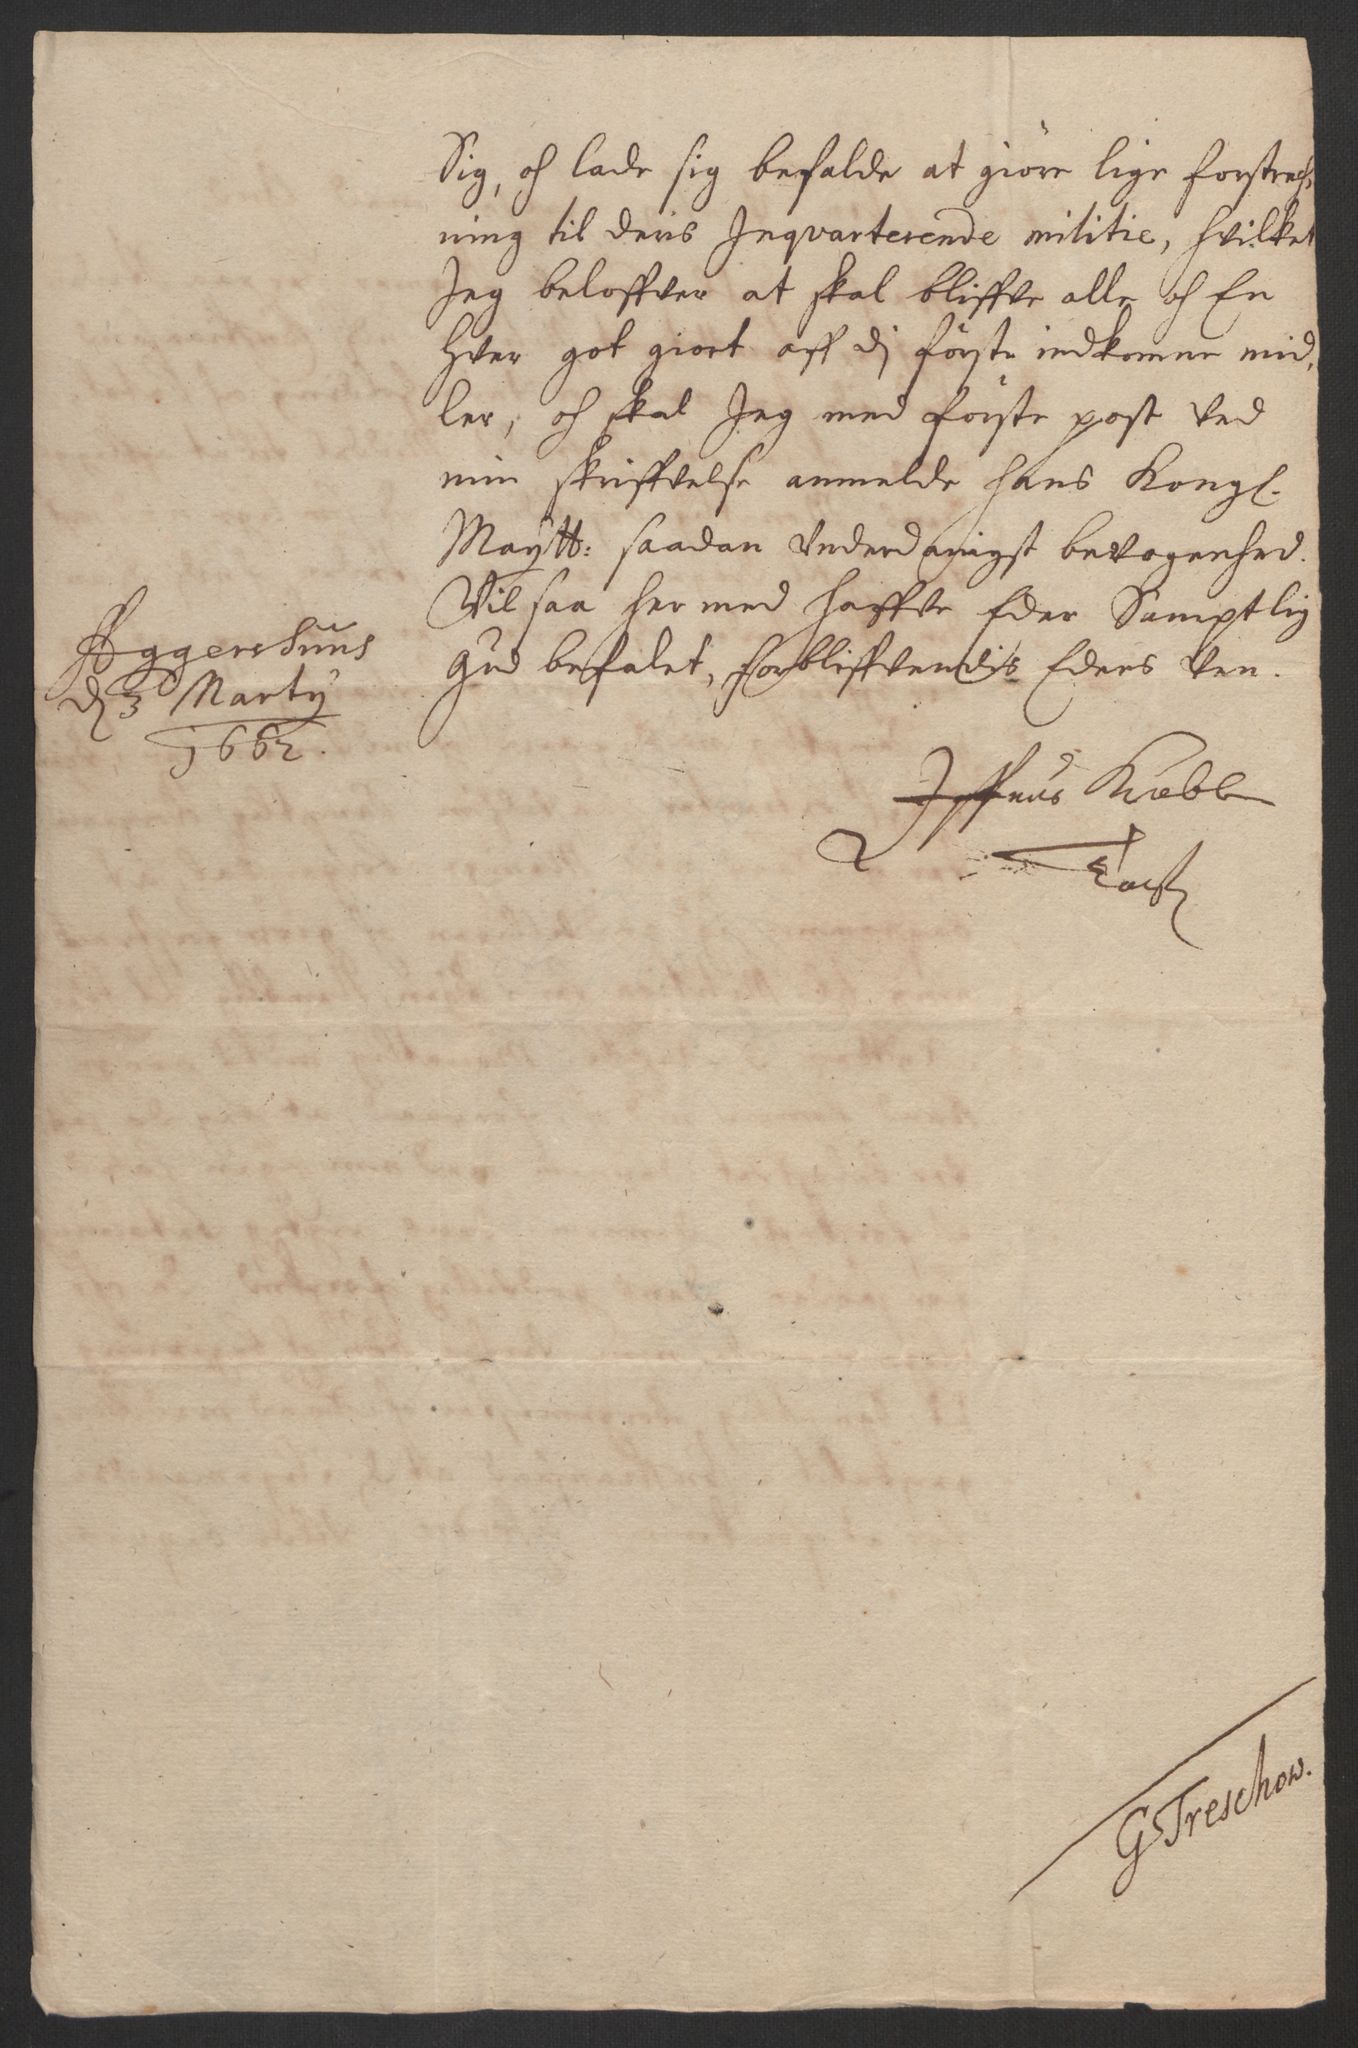 Sig, och lade sig befalde at giöre lige forstrech,
ning til deris Inqvarterende militie, hvilket
Jeg beloffver at skal bliffve alle och En
hver got giort aff dj förste indkomne mid,
ler, och skal Jeg med förste post ved
min skriffvelse anmelde hans Kongl.
Maytt: saadan Underdanigst bevogenhed.
Vil saa her med haffve Eder Samptlig
Gud befalet, forbliffvendis Eders Ven.
Aggershuus
dj 3 Marty
1662.
Krabbe
G Treschow.